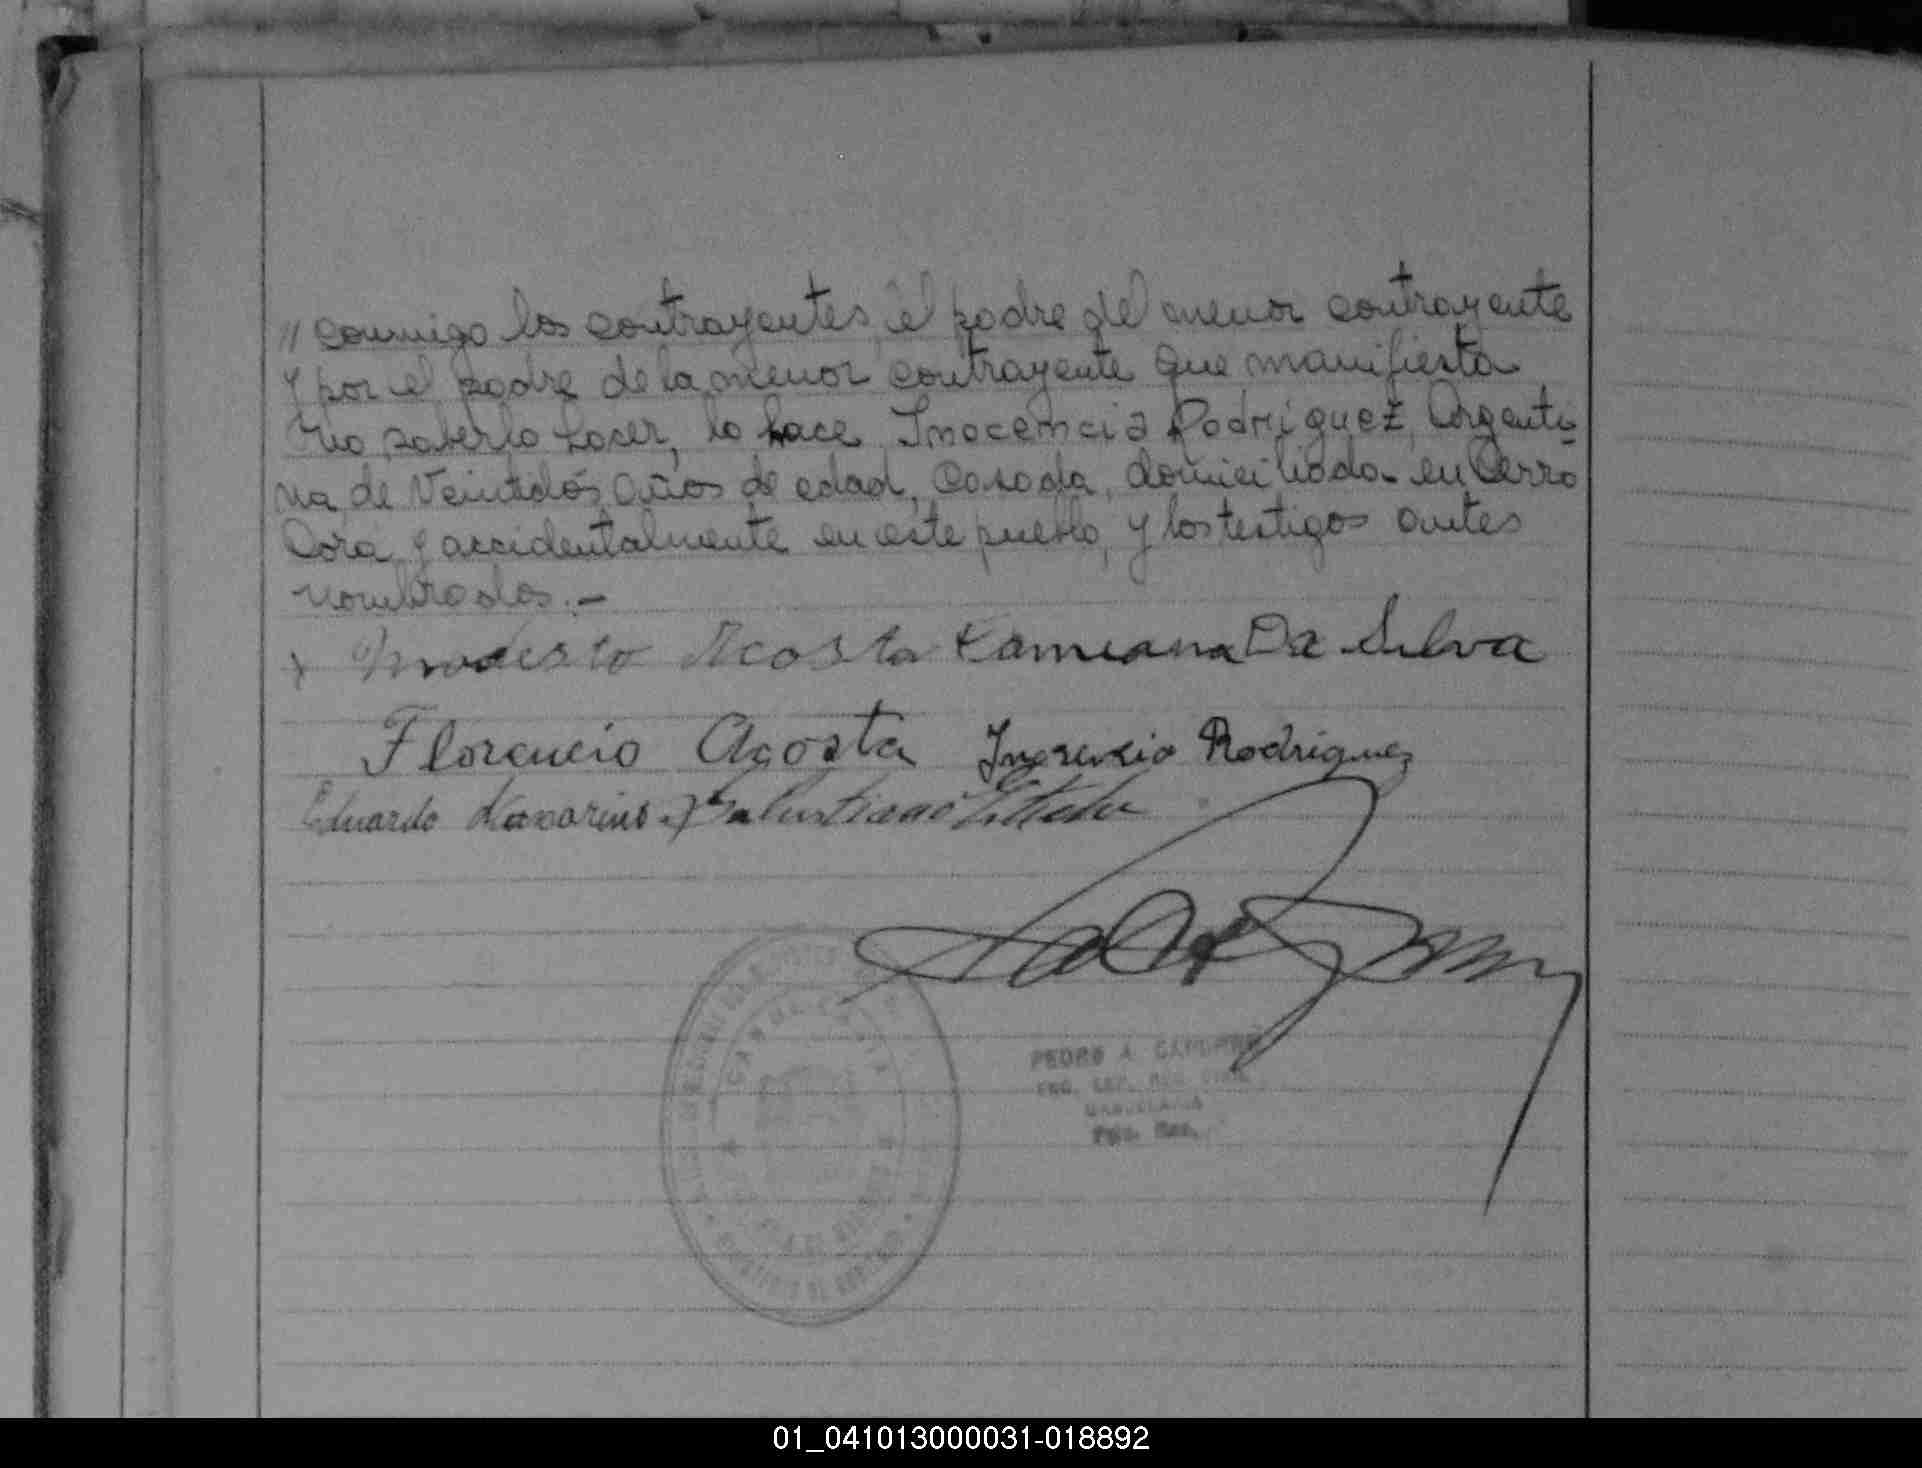 // conmigo los contrayentes, el padre del menor contrayente
y por el padre de la menor contrayente que manifiesta
no saberlo hacer, lo hace Inocencia Rodríguez, Argenti-
na de Veintidós años de edad, Casada, domiciliada en Cerro
Corá y accidentalmente en este pueblo, y los testigos antes
nombrados.-
Modesto Acosta Damiana Da Silva
Florencio Acosta Inosensia Rodriguez
Eduardo
PEDRO A.
01_041013000031-018892